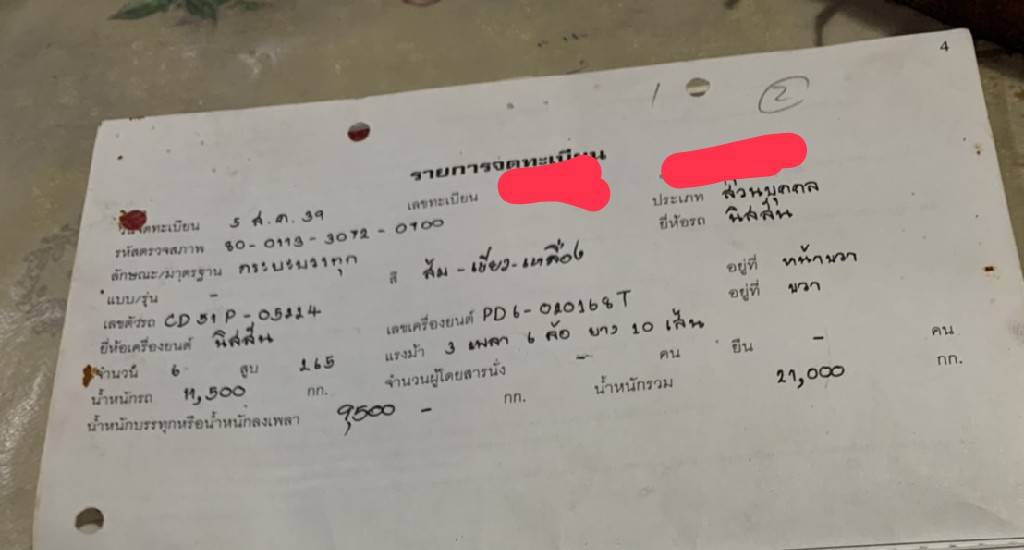 4
1 2
รายการจดทะเบียน
วันจดทะเบียน 5 ส.ค. 39 เลขทะเบียน ประเภท ส่วนบุคคล
รหัสตรวจสภาพ 80-0113-3072-0700 ยี่ห้อรถ นิสสัน
ลักษณะ/มาตรฐาน กระบะบรรทุก สี ส้ม-เขียว-เหลือง
แบบ/รุ่น - อยู่ที่ หน้าขวา
เลขตัวรถ CD51P-05224 เลขเครื่องยนต์ PD6-020168T อยู่ที่ ขวา
ยี่ห้อเครื่องยนต์ นิสสัน
จำนวน 6 สูบ 265 แรงม้า 3 เพลา 6 ล้อ ยาง 10 เส้น
น้ำหนักรถ 11,500 กก. จำนวนผู้โดยสารนั่ง - คน ยืน - คน
น้ำหนักบรรทุกหรือน้ำหนักลงเพลา 9,500 - กก. น้ำหนักรวม 21,000 กก.